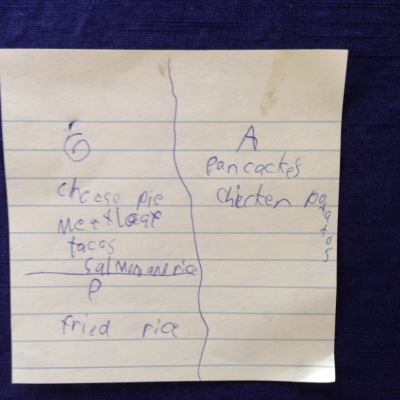 cheese pie
meatloaf
tacos
salmon and rice
P
fried rice
A
pancackes
chicken potatos